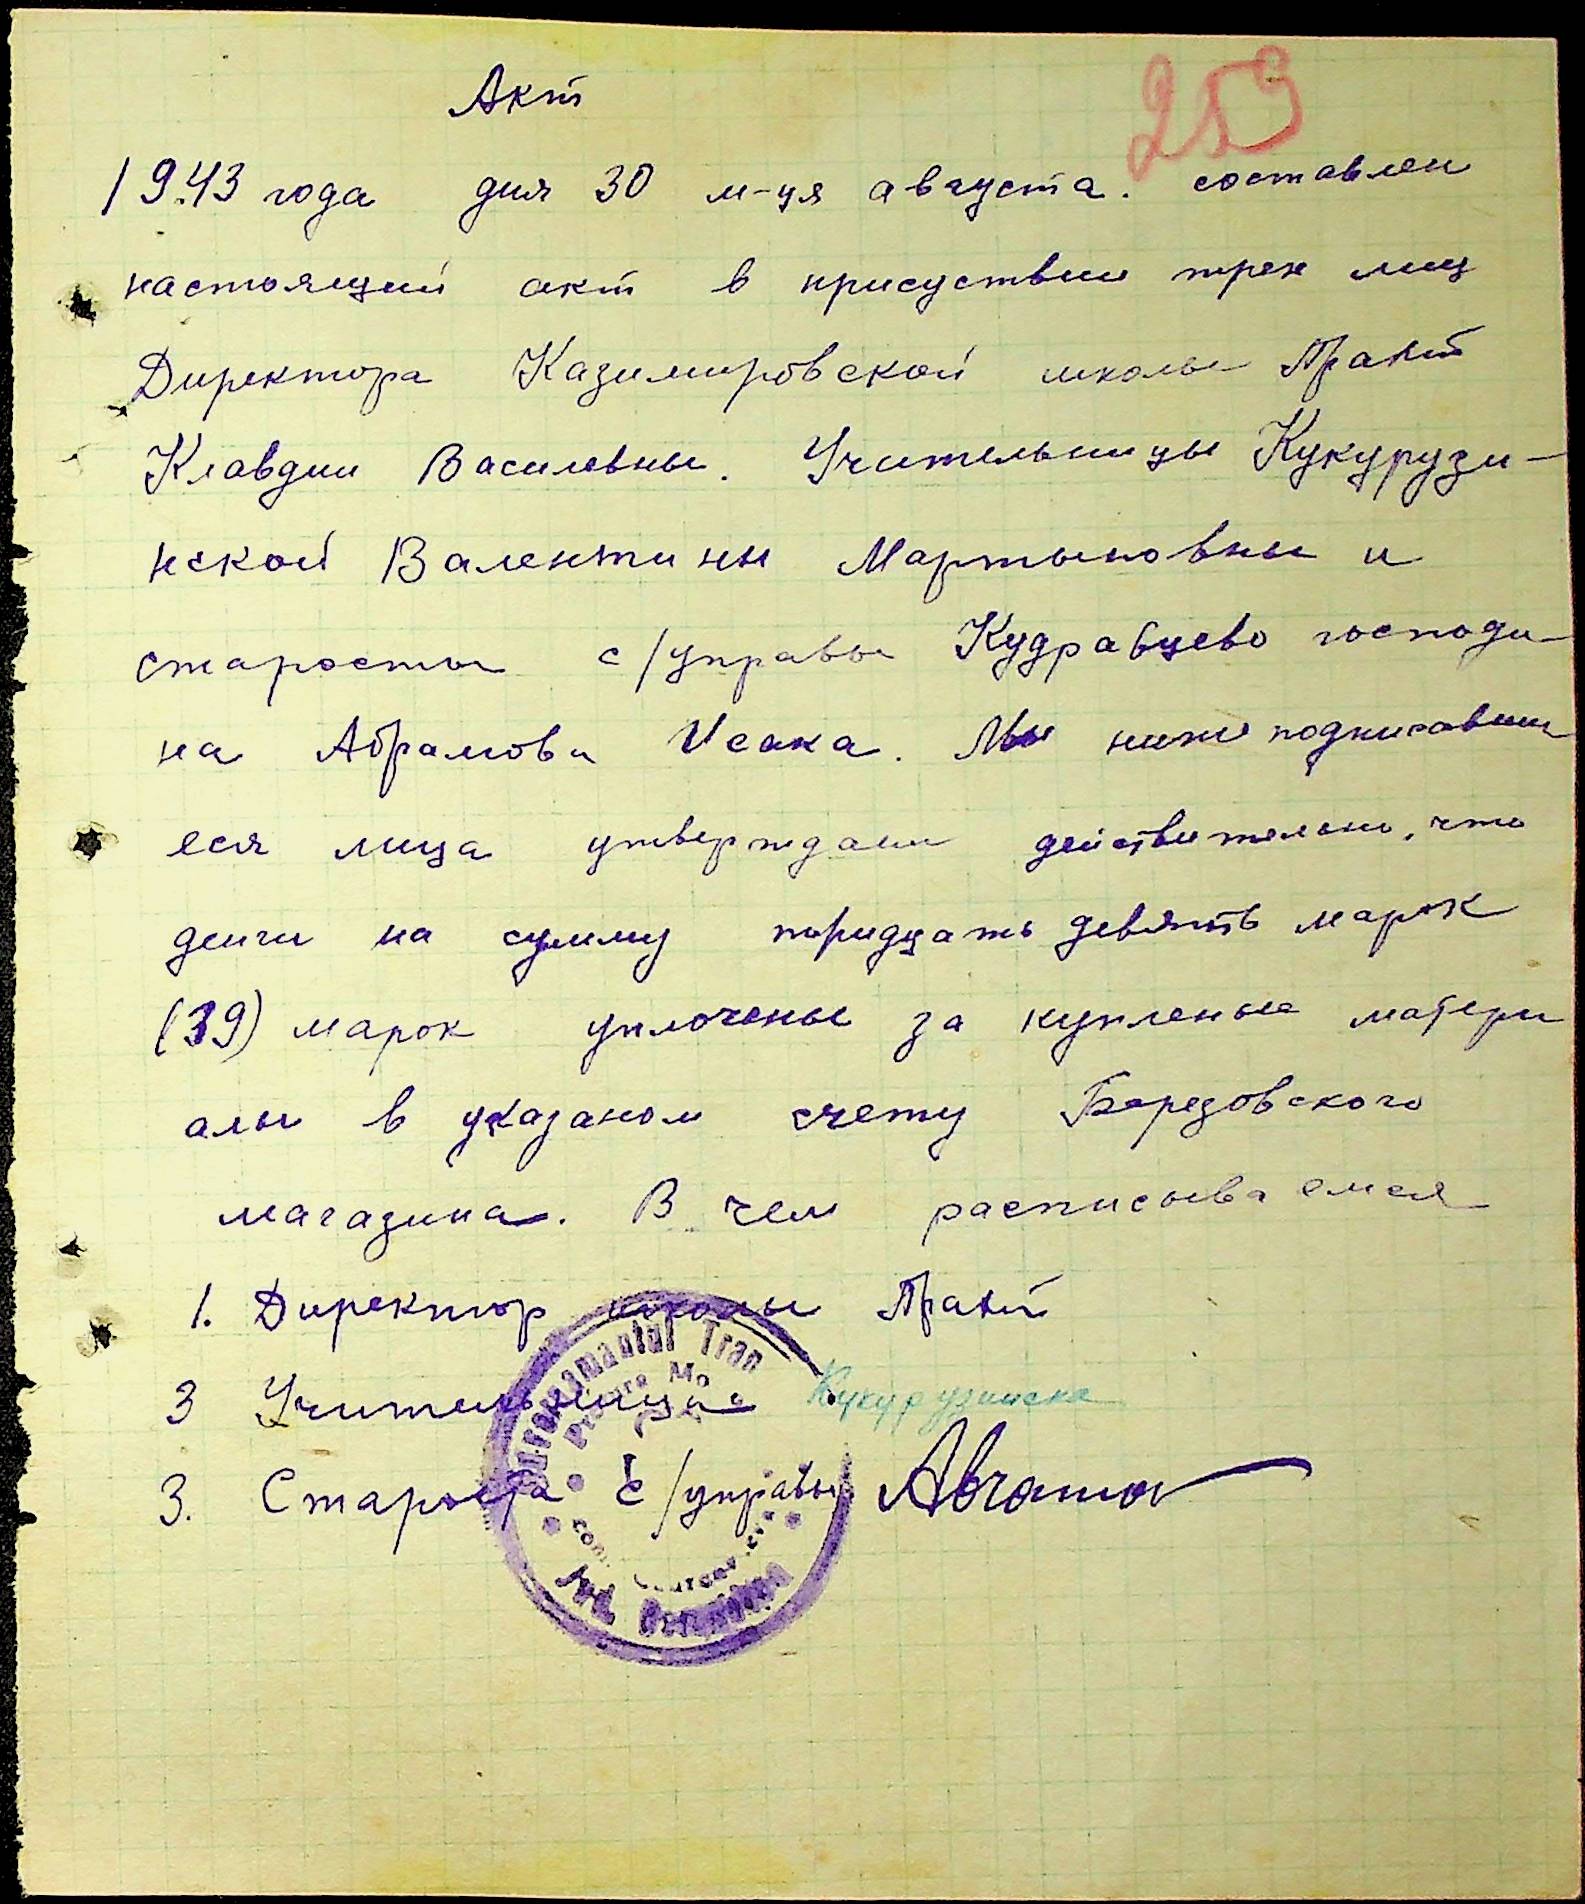 253
Акт
1943 года дня 30 м-ця августа. составлен
настоящий акт в присуствии трех лиц
Директора Казимировской школы
Клавдии Василевны. Учительницы Кукурузи-
нской Валентины Мартыновны и
старосты с/управы Кудравцево господи-
на Абрамова Исака. Мы ниже подписавши
еся лица утверждаем действительно, что
денги на сумму тридцать девять марок
(39) марок уплочены за купленые матери
алы в указаном счету Березовского
магазина. В чем расписываемся
1. Директор школы
3 Учительница Кукурузинска
3. Староста с/управы
Guvernamantul Tran
Jud.